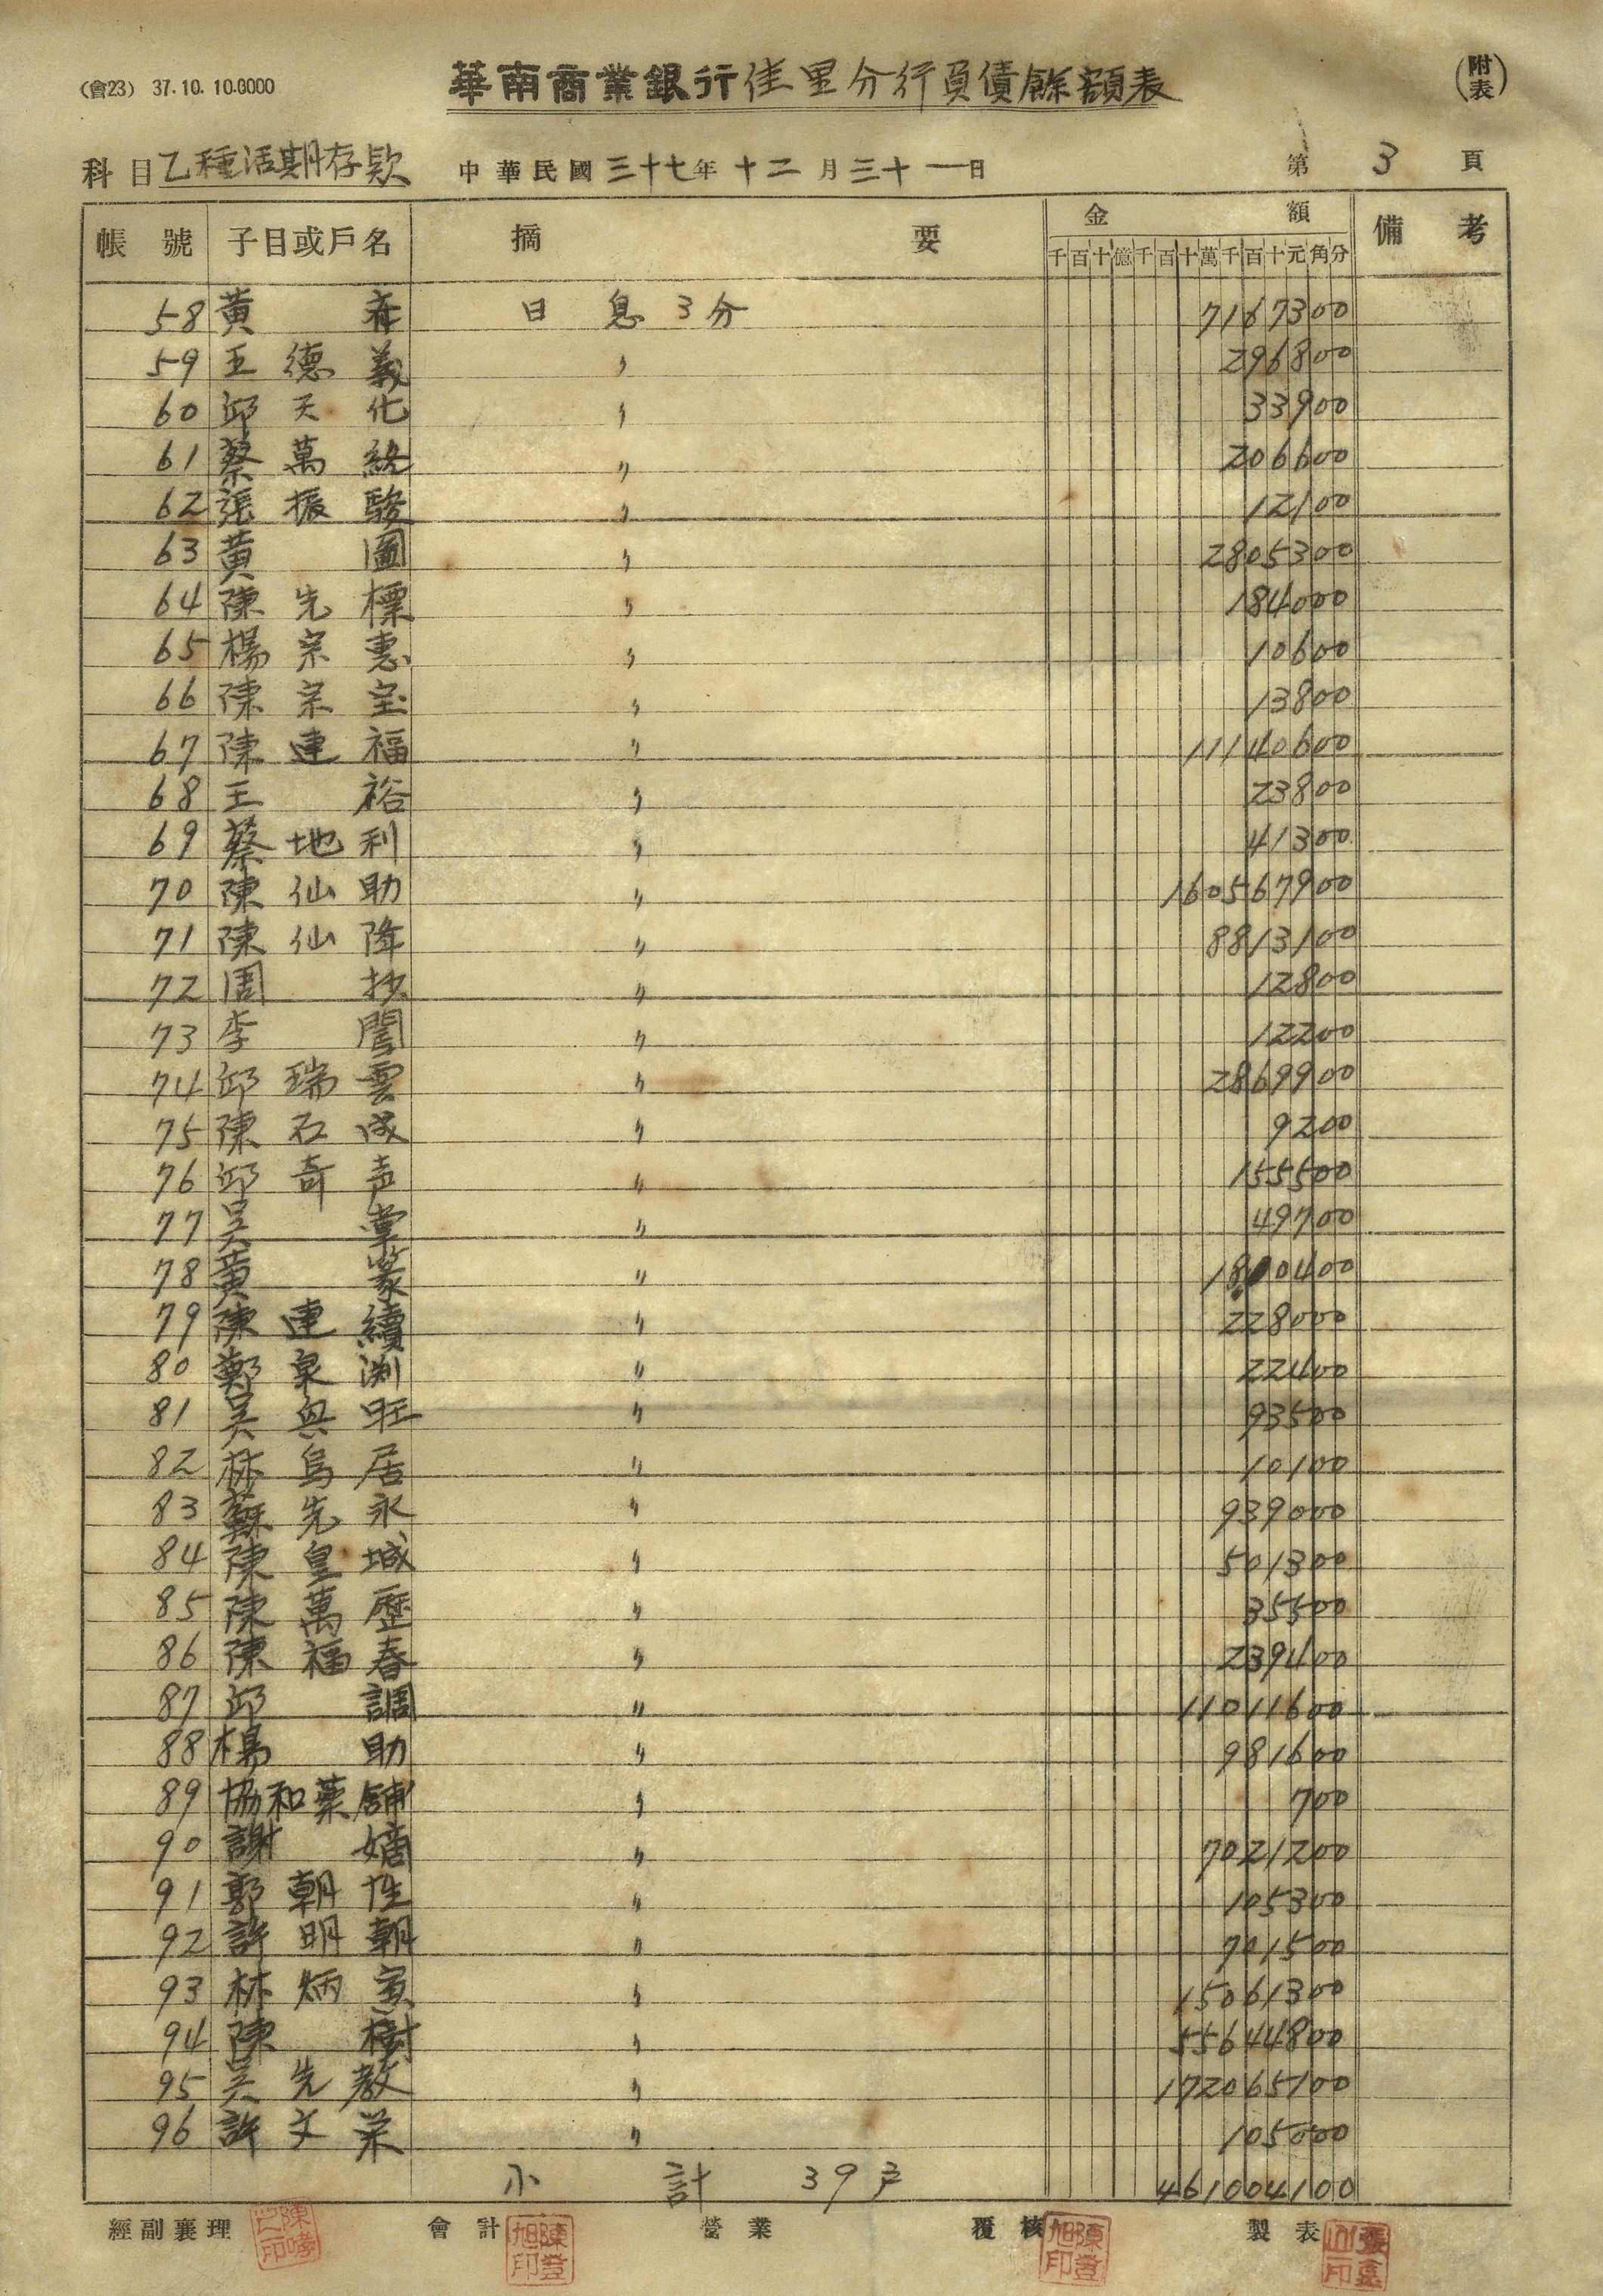 (會23) 37.10.10.0000
華南商業銀行佳里分行負債餘額表
(附表)
科目 乙種活期存款 中華民國三十七年十二月三十一日 第 3 頁
帳號 子目或戶名 摘要 金額 備考
千百十億千百十萬千百十元角分
58 黃 日息3分 7167300
59 王德義 〃 296800
60 邱天化 〃 33900
61 蔡萬 〃 206600
62 張振駿 〃 12100
63 黃圖 〃 2805300
64 陳先標 〃 184000
65 楊宗惠 〃 10600
66 陳宗宝 〃 13800
67 陳連福 〃 11140600
68 王裕 〃 23800
69 蔡地利 〃 41300
70 陳仙助 〃 160567900
71 陳仙降 〃 8813100
72 周抄 〃 12800
73 李 〃 12200
74 邱瑞雲 〃 2869900
75 陳石成 〃 9200
76 邱奇声 〃 155500
77 吳掌 〃 49700
78 黃篆 〃 1800400
79 陳連續 〃 228000
80 鄭泉渕 〃 22400
81 吳與旺 〃 93500
82 林烏居 〃 10100
83 蘇先永 〃 939000
84 陳皇城 〃 501300
85 陳萬歷 〃 35500
86 陳福春 〃 239400
87 邱調 〃 11011600
88 楊助 〃 981600
89 協和藥舖 〃 700
90 謝嫡 〃 7021200
91 郭朝性 〃 105300
92 許明朝 〃 701500
93 林炳寅 〃 15061300
94 陳樹 〃 55644800
95 吳先教 〃 172065100
96 許文荣 〃 105000
小計 39戶 461004100
經副襄理 會計 營業 覆核 製表
陳登旭印 陳登旭印